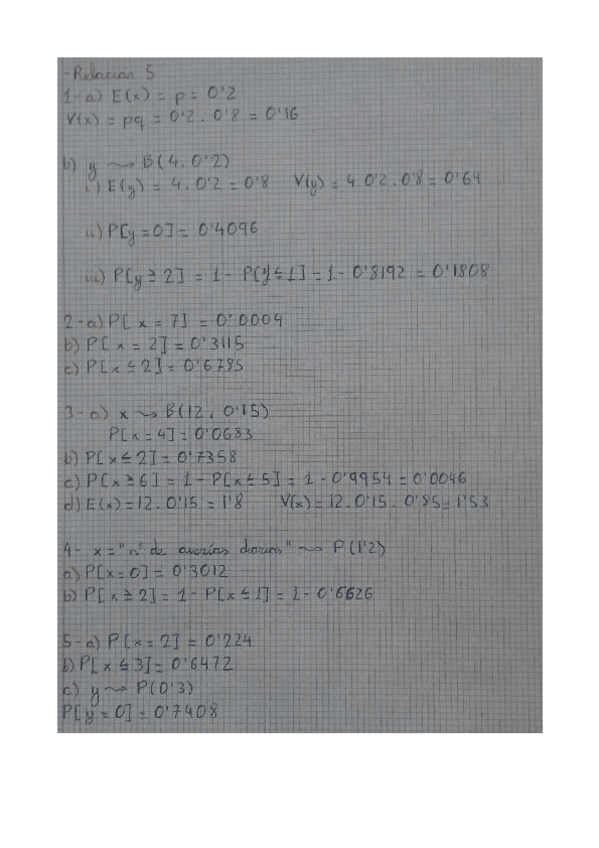 - Relación 5
1- a) E(x) = p = 0'2
V(x) = pq = 0'2 . 0'8 = 0'16
b) y ⟿ B(4, 0'2)
i) E(y) = 4 . 0'2 = 0'8 V(y) = 4 . 0'2 . 0'8 = 0'64
ii) P[y = 0] = 0'4096
iii) P[y ≥ 2] = 1 - P[y ≤ 1] = 1 - 0'8192 = 0'1808
2- a) P[x = 7] = 0'0004
b) P[x = 2] = 0'3115
c) P[x ≤ 2] = 0'6785
3- a) x ⟿ B(12, 0'15)
P[x = 4] = 0'0683
b) P[x ≤ 2] = 0'7358
c) P[x ≥ 6] = 1 - P[x ≤ 5] = 1 - 0'9954 = 0'0046
d) E(x) = 12 . 0'15 = 1'8 V(x) = 12 . 0'15 . 0'85 = 1'53
4- x = "nº de averías diarias" ⟿ P(1'2)
a) P[x = 0] = 0'3012
b) P[x ≥ 2] = 1 - P[x ≤ 1] = 1 - 0'6626
5- a) P[x = 2] = 0'224
b) P[x ≤ 3] = 0'6472
c) y ⟿ P(0'3)
P[y = 0] = 0'7408